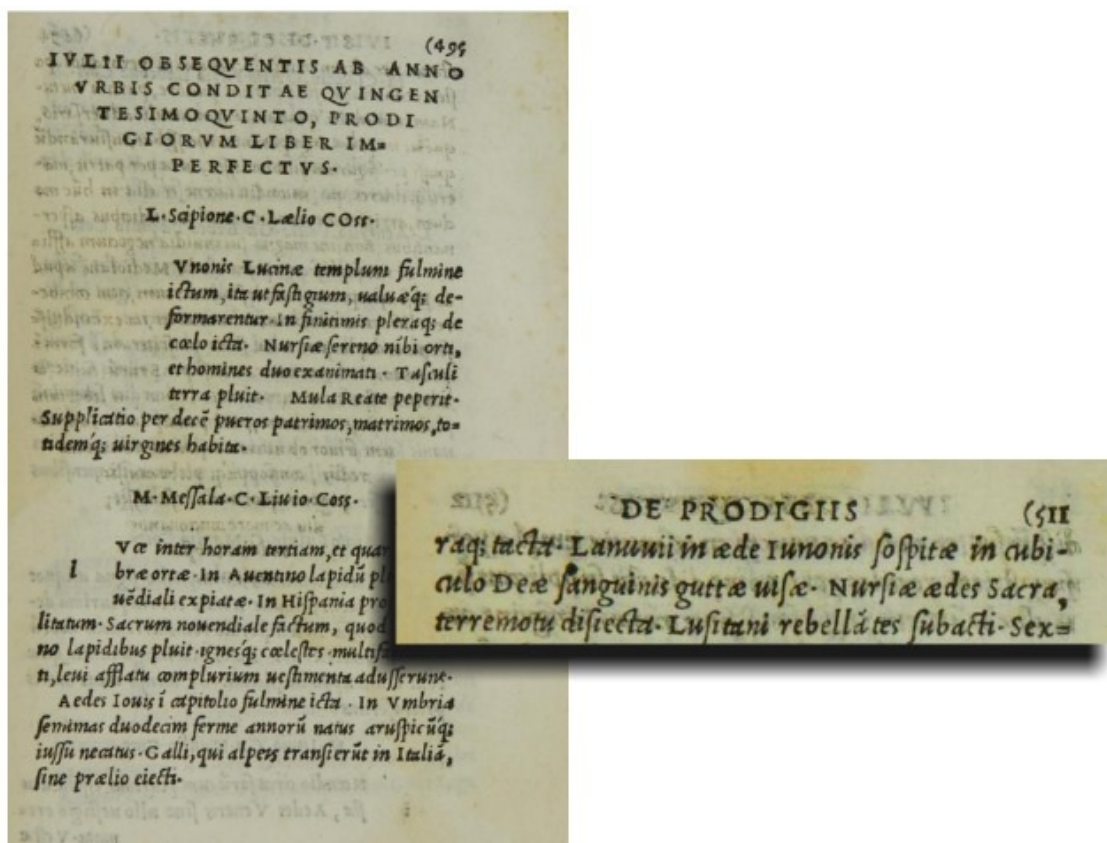 (495
IVLII OBSEQVENTIS AB ANNO
VRBIS CONDITAE QVINGEN
TESIMOQVINTO, PRODI
GIORVM LIBER IM=
PERFECTVS·
L·Scipione·C·Lælio COss·
Vnonis Lucinæ templum fulmine
ictum, ita ut fastigium, ualuæq́; de-
formarentur·In finitimis pleraq; de
cœlo icta· Nursiæ sereno nibi orti,
et homines duo exanimati· Tasculi
terra pluit· Mula Reate peperit·
Supplicatio per decē pueros patrimos, matrimos, to=
tidemq́; uirgines habita·
M·Messala·C·Liuio Coss·
Vce inter horam tertiam, et quar
l bræ ortæ·In Auentino lapidū pl
uēdiali expiatæ·In Hispania pro
litatum·Sacrum nouendiale factum, quod
no lapidibus pluit·ignesq́; cœlestes·multif
ti, leui afflatu complurium uestimenta adusserunt·
Aedes Iouis ī capitolio fulmine icta·In Vmbria
semimas duodecim ferme annorū natus aruspicūq́;
iussu necatus·Galli, qui alpeis transierūt in Italiā,
sine prælio eiecti·
DE PRODIGIIS (511
raq; tacta·Lanuuii in æde Iunonis sospitæ in cubi-
culo Deæ sanguinis guttæ uisæ· Nursiæ ædes Sacra,
terremotu disiecta·Lusitani rebellātes subacti·Sex=